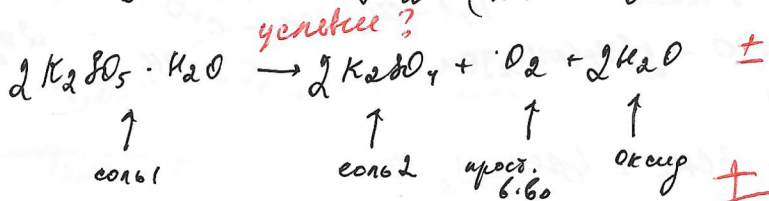 условие ?
2K₂SO₅ · H₂O → 2K₂SO₄ + O₂ + 2H₂O ±
↑ ↑ ↑ ↑
соль1 соль2 прост. оксид
в-во ±